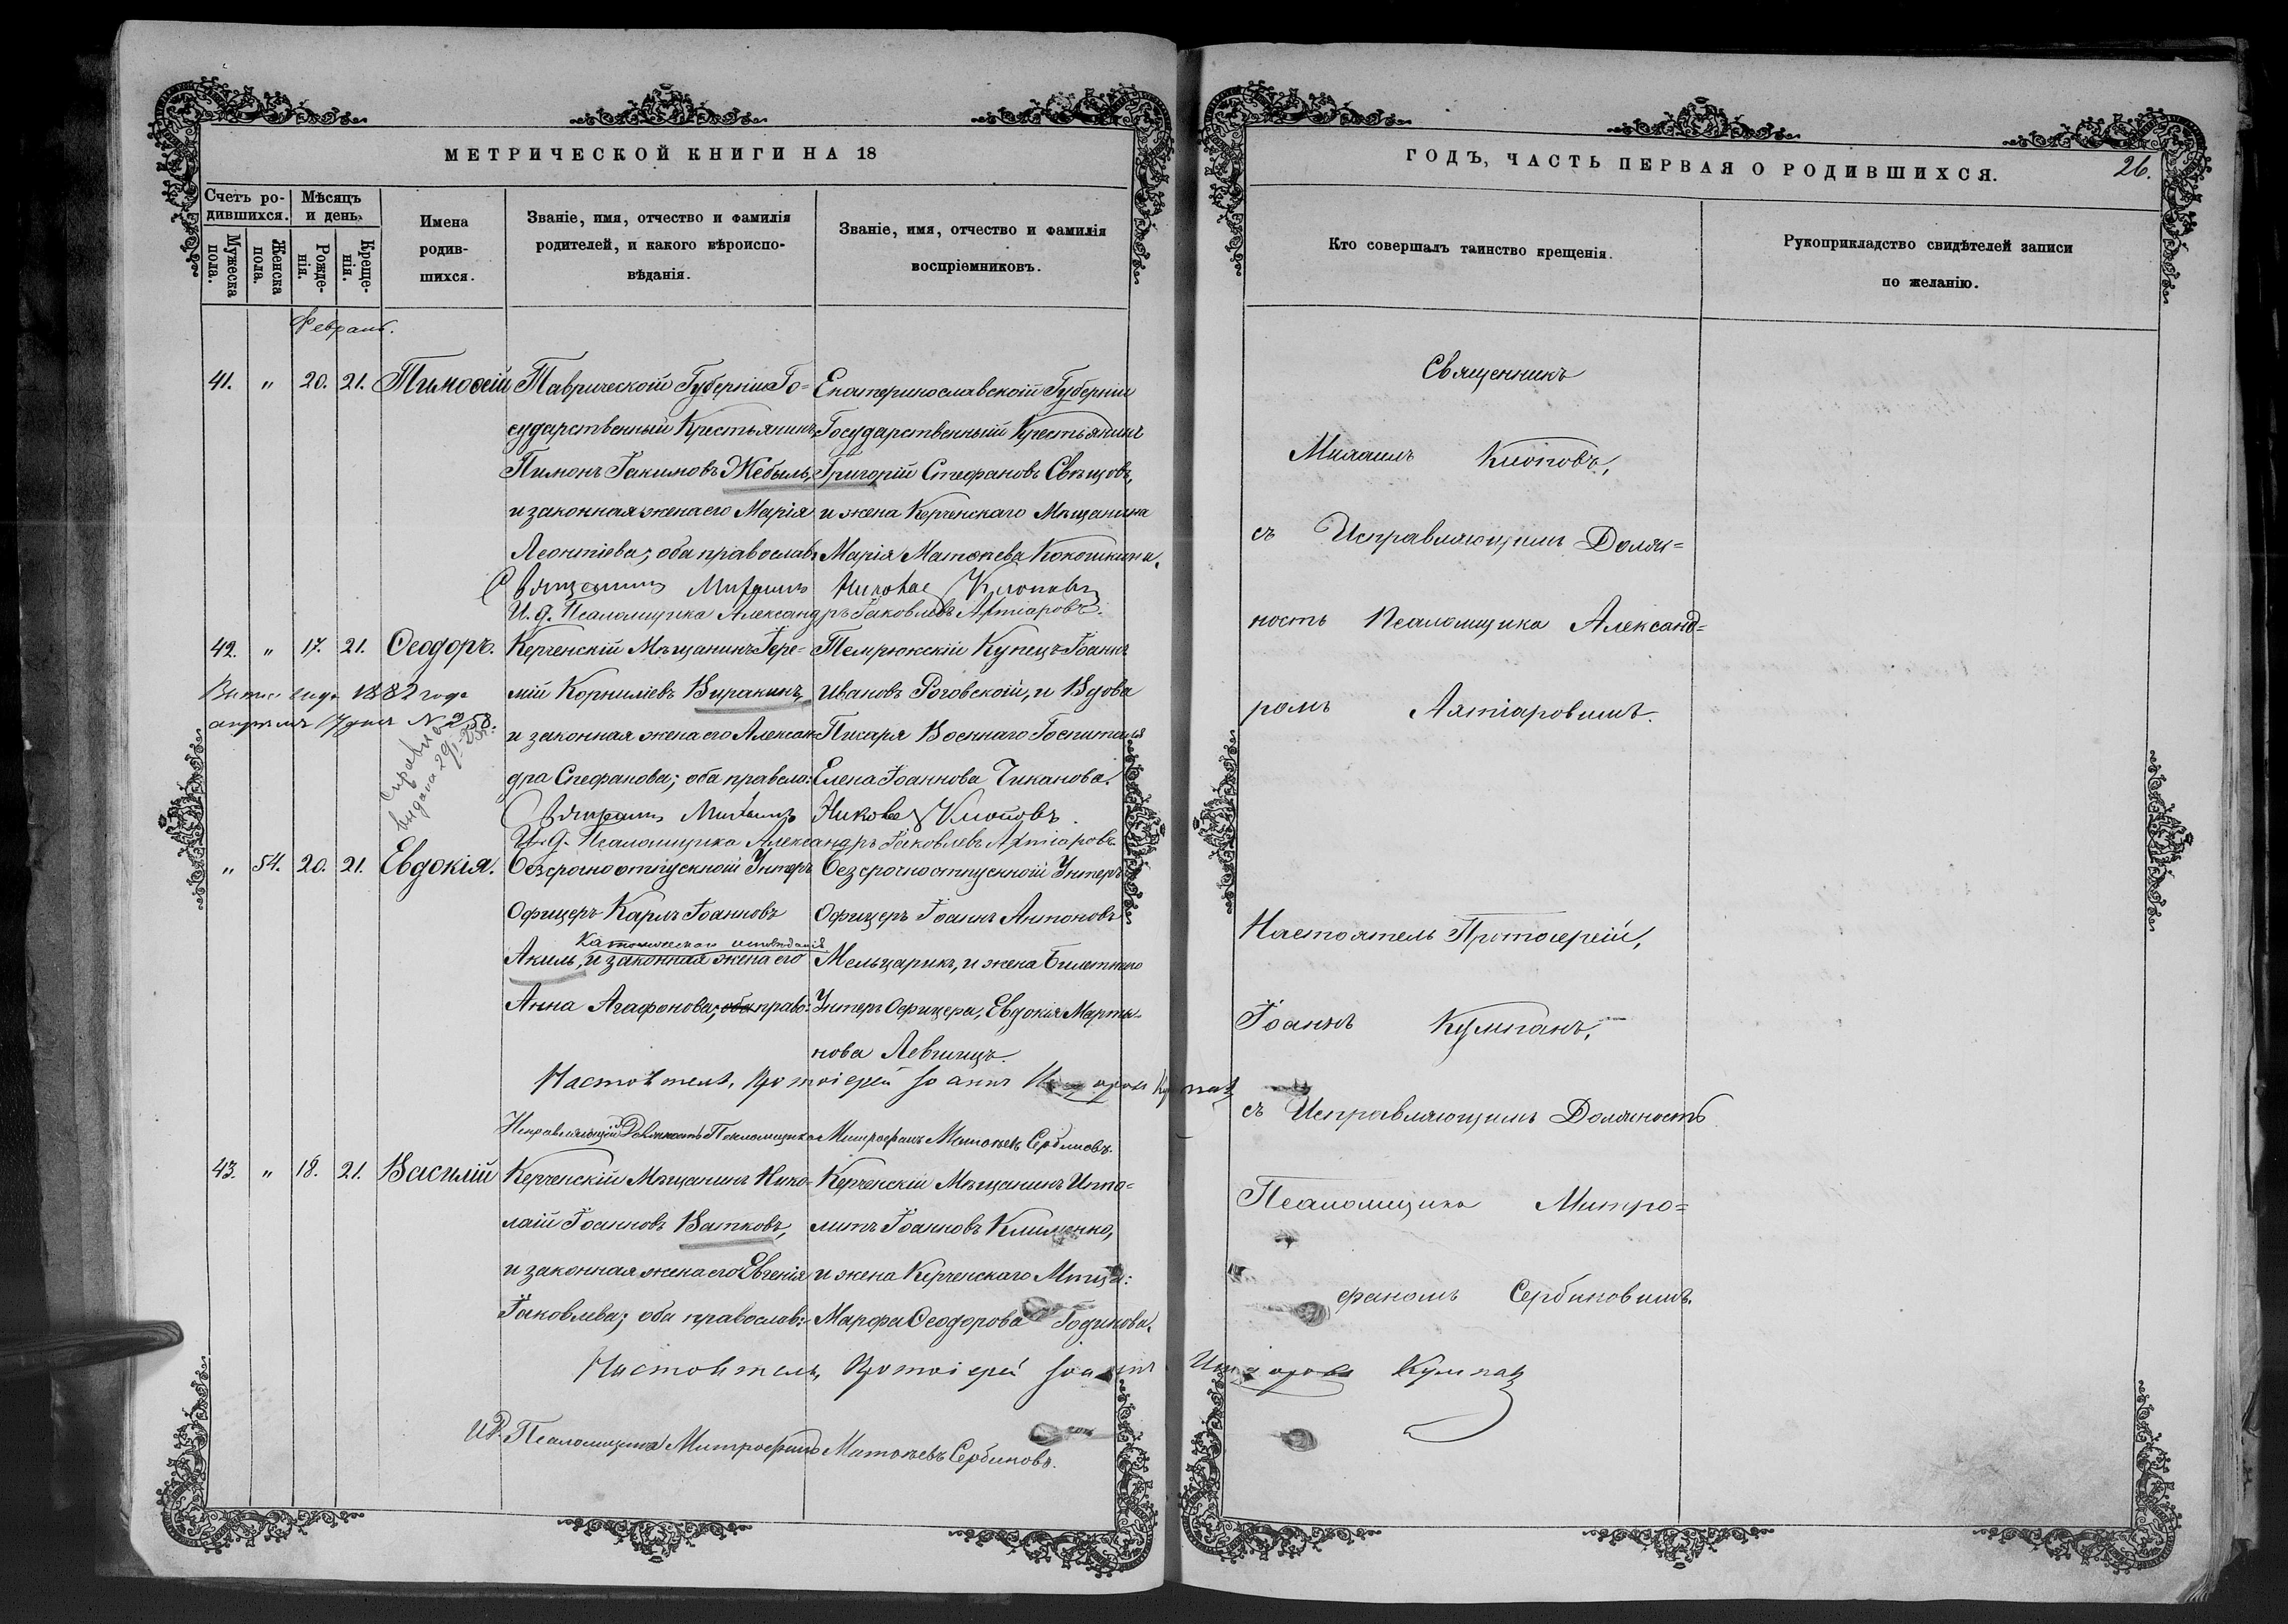 МЕТРИЧЕСКОЙ КНИГИ НА 18
Счетъ ро-
дившихся.
Мѣсяцъ
и день.
Мужеска
пола.
Женска
пола.
Рожде-
нія.
Креще-
нія.
Имена
родив-
шихся.
Званіе, имя, отчество и фамилія
родителей, и какого вѣроиспо-
вѣданія.
Званіе, имя, отчество и фамилія
воспріемниковъ.
Февраль.
41. " 20. 21. Тимоѳей
Таврической Губерніи Го=
сударственный Крестьянинъ
Пимонъ Іакимовъ Жебыль,
и законная жена его Марія
Леонтіева; оба православ:
Екатеринославской Губерніи
Государственный Крестьянинъ
Григорій Стефановъ Свѣщовъ,
и жена Керченскаго Мѣщанина
Марія Матѳеева Кокошкина.
Священникъ Михаилъ Николаев Клоповъ
И. д. Псаломщика Александръ Іаковлевъ Ахтіаровъ.
42. " 17. 21. Ѳеодоръ.
1882 года
апрѣля 17 дня № 258.
Справка
выдана
Керченскій Мѣщанинъ Іере=
мій Корниліевъ Виракинъ,
и законная жена его Алексан
дра Стефанова; оба правосл:
Темрюкскій Купецъ Іоаннъ
Ивановъ Роговской, и Вдова
Писаря Военнаго Госпиталя
Елена Іоаннова Чиканова.
Священникъ Михаилъ Николаев Клоповъ.
И. д. Псаломщика Александръ Іаковлевъ Ахтіаровъ.
" 54. 20. 21. Евдокія.
Безсрочноотпускной Унтеръ
Офицеръ Карлъ Іоанновъ
Католическаго исповѣданія
Акиль, и законная жена его
Анна Агафонова; оба право:
Безсрочноотпускной Унтеръ
Офицеръ Іоаннъ Антоновъ
Мельцарикъ, и жена Билетнаго
Унтеръ Офицера, Евдокія Марты-
нова Левчицъ.
Настоятель, Протоіерей Іоаннъ Кумпанъ
Исправляющій Должность Псаломщика Митрофанъ Матѳеевъ Сербиновъ.
43. " 18. 21. Василій
Керченскій Мѣщанинъ Нико-
лай Іоанновъ Ватковъ,
и законная жена его Евгенія
Іаковлева; оба православ:
Керченскій Мѣщанинъ Ипо=
литъ Іоанновъ Клименко,
и жена Керченскаго Мѣща:
Марфа Ѳеодорова Годинова.
Настоятель, Протоіерей Іоаннъ Кумпанъ
И.Д. Псаломщика Митрофанъ Матѳеевъ Сербиновъ.
ГОДЪ, ЧАСТЬ ПЕРВАЯ О РОДИВШИХСЯ.
26.
Кто совершалъ таинство крещенія.
Рукоприкладство свидѣтелей записи
по желанію.
Священникъ
Михаилъ Клоповъ,
съ Исправляющимъ Долж=
ность Псаломщика Александ=
ромъ Ахтіаровымъ.
Настоятель Протоіерей,
Іоаннъ Кумпанъ,
съ Исправляющимъ Должность
Псаломщика Митро=
фаномъ Сербиновымъ.